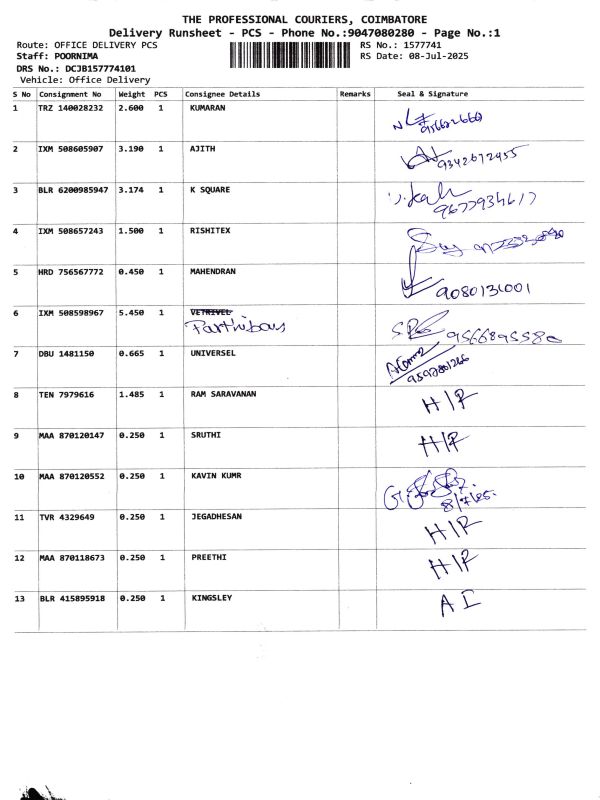 THE PROFESSIONAL COURIERS, COIMBATORE
Delivery Runsheet - PCS - Phone No.:9047080280 - Page No.:1
Route: OFFICE DELIVERY PCS RS No.: 1577741
Staff: POORNIMA RS Date: 08-Jul-2025
DRS No.: DCJB157774101
Vehicle: Office Delivery
S No Consignment No Weight PCS Consignee Details Remarks Seal & Signature
1 TRZ 140028232 2.600 1 KUMARAN
2 IXM 508605907 3.190 1 AJITH 9342672455
3 BLR 6200985947 3.174 1 K SQUARE
4 IXM 508657243 1.500 1 RISHITEX
5 HRD 756567772 0.450 1 MAHENDRAN 9080131001
6 IXM 508598967 5.450 1 VETRIVEL
9566895580
7 DBU 1481150 0.665 1 UNIVERSEL
8 TEN 7979616 1.485 1 RAM SARAVANAN H/R
9 MAA 870120147 0.250 1 SRUTHI H/R
10 MAA 870120552 0.250 1 KAVIN KUMR
11 TVR 4329649 0.250 1 JEGADHESAN H/R
12 MAA 870118673 0.250 1 PREETHI H/R
13 BLR 415895918 0.250 1 KINGSLEY A I